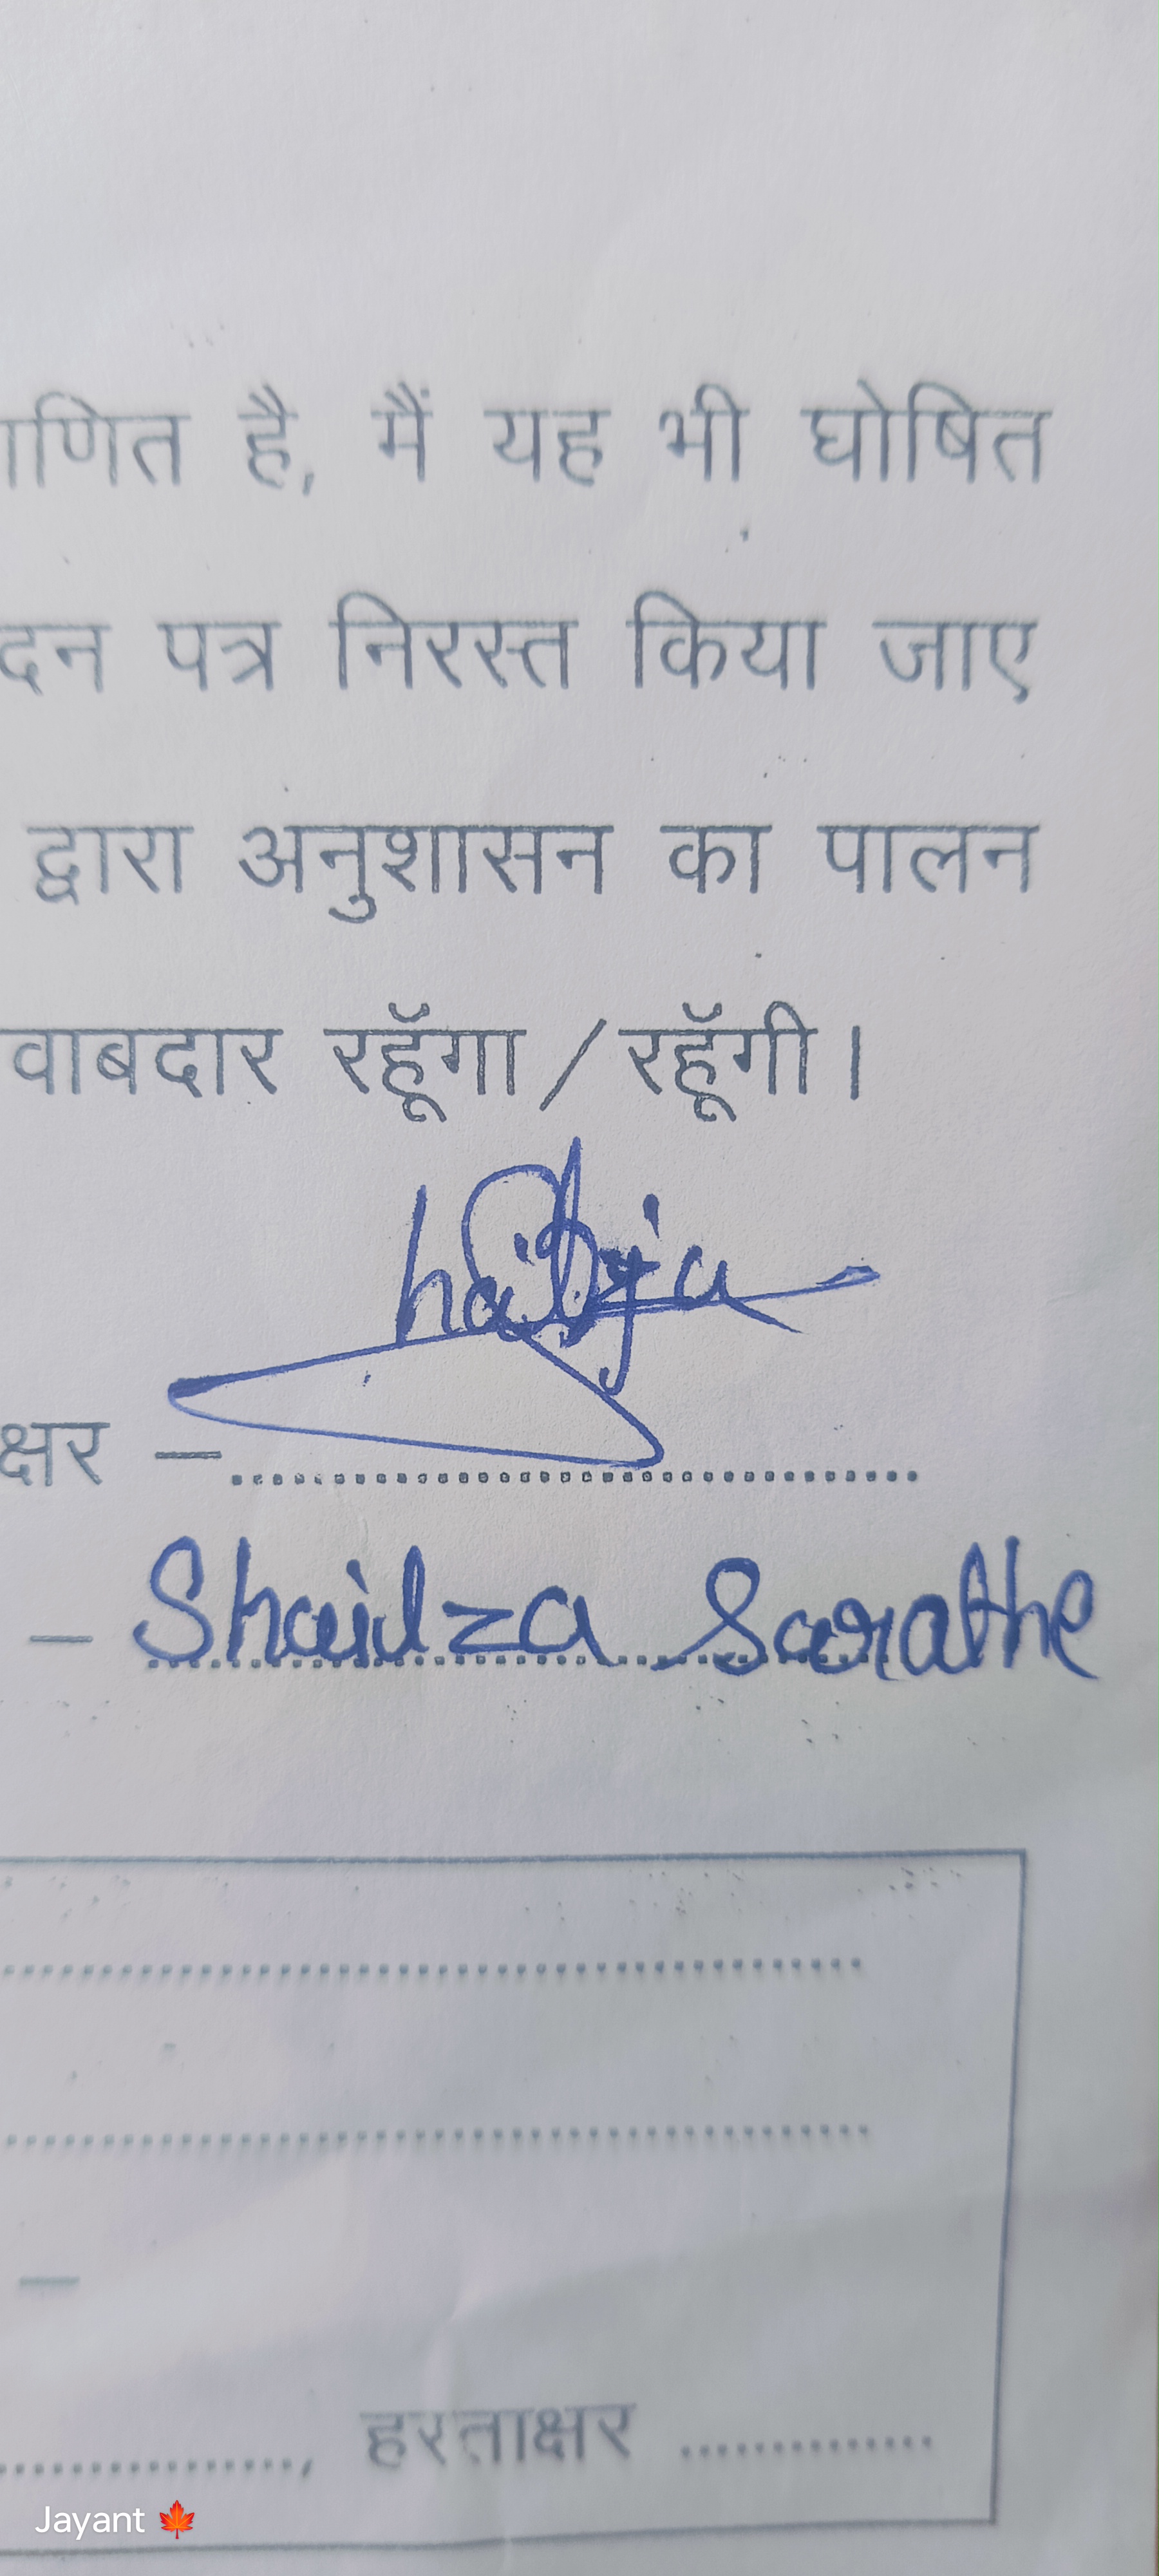 ाणित है, मैं यह भी घोषित
दन पत्र निरस्त किया जाए
द्वारा अनुशासन का पालन
वाबदार रहूॅगा / रहूॅगी।
क्षर –
– Shailza Sarathe
–
, हस्ताक्षर
Jayant 🍁